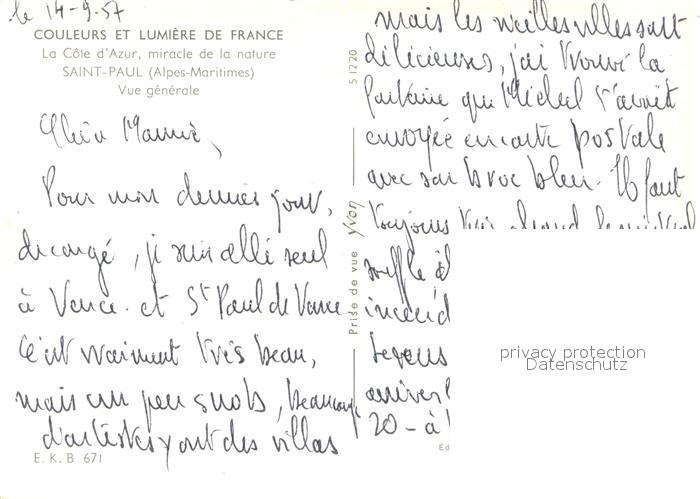 le 14-9-57
COULEURS ET LUMIÈRE DE FRANCE
La Côte d'Azur, miracle de la nature
SAINT-PAUL (Alpes-Maritimes)
Vue générale
Chère Mamie,
Pour mon dernier jour,
de congé, je suis allé seul
à Vence. et St Paul de Vence
C'est vraiment très beau,
mais un peu snob, beaucoup
d'artistes y ont des villas
E. K. B 671
51220
Prise de vue Yvon
mais les vieilles villes sont
délicieuses, j'ai trouvé la
fontaine que Michel t'avait
envoyée en carte postale
avec son broc bleu. Il faut
toujours très chaud le mistral
souffle
incend
serons
arriver
20 - à
Éd
privacy protection
Datenschutz